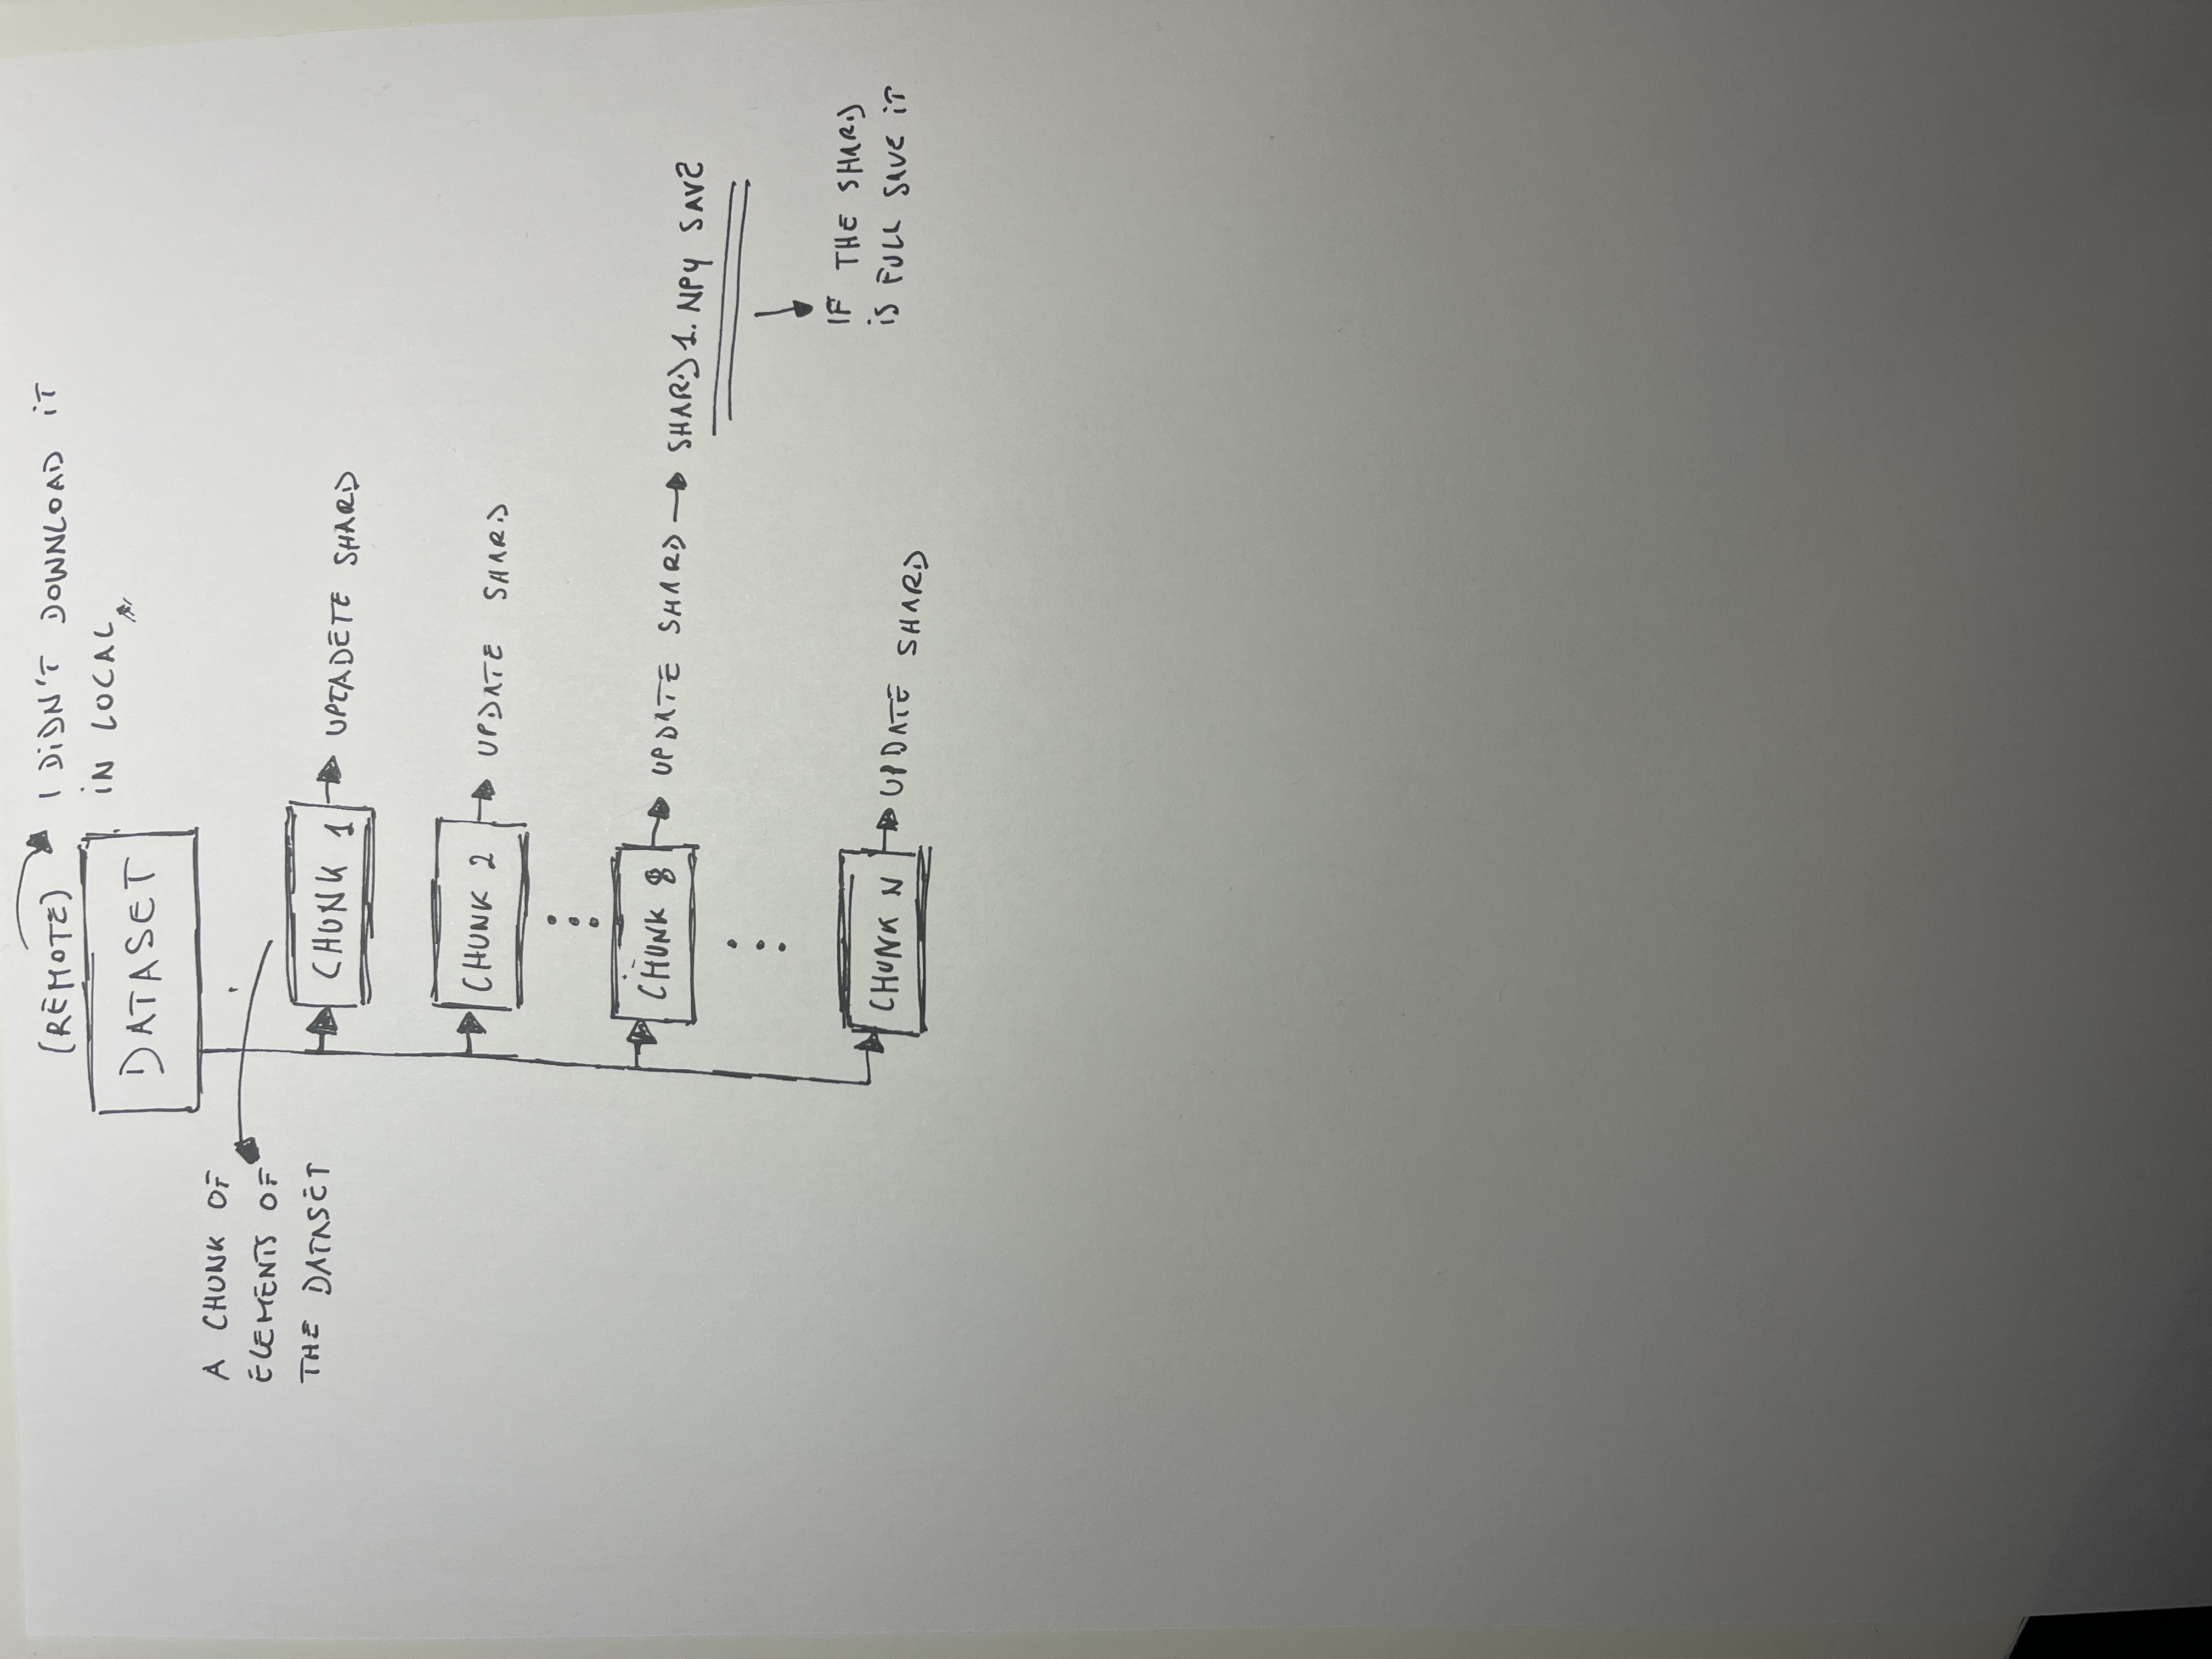 (REMOTE)
I DIDN'T DOWNLOAD IT
IN LOCAL
DATASET
A CHUNK OF
ELEMENTS OF
THE DATASET
CHUNK 1
UPTADETE SHARD
CHUNK 2
UPDATE SHARD
CHUNK 8
UPDATE SHARD
SHARD1.NPY SAVE
IF THE SHARD
IS FULL SAVE IT
CHUNK N
UPDATE SHARD